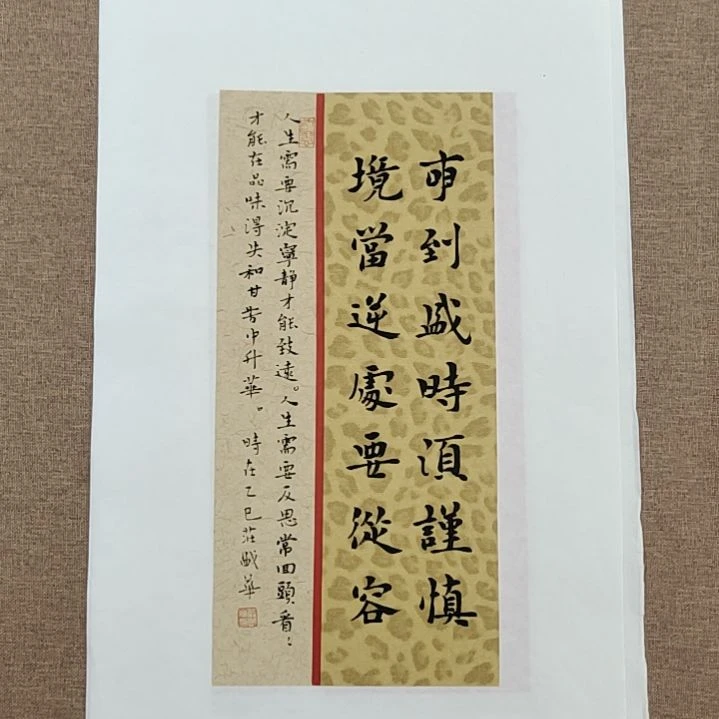 事到盛時須謹慎
境當逆處要從容
人生需要沉淀寧靜才能致遠。人生需要反思常回頭看，
才能在品味得失和甘苦中升華。時在乙巳莊盛華